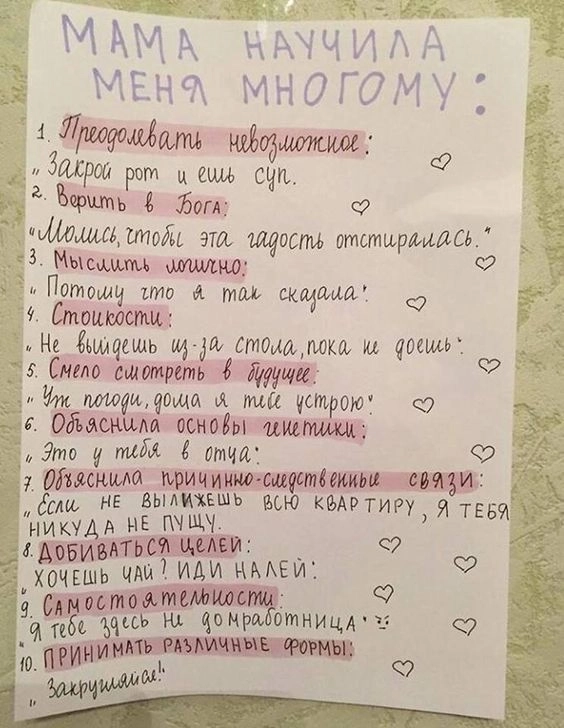 МАМА НАУЧИЛА
МЕНЯ МНОГОМУ:
1. Преодолевать невозможное:
„Закрой рот и ешь суп.
2. Верить в Бога:
„Молись, чтобы эта гадость отстиралась."
3. Мыслить логично:
„Потому что я так сказала".
4. Стойкости:
„Не выйдешь из-за стола, пока не доешь".
5. Смело смотреть в будущее:
„Уж погоди, дома я тебе устрою"
6. Объяснила основы генетики:
„Это у тебя в отца".
7. Объяснила причинно-следственные связи:
„Если не вылижешь всю квартиру, я тебя
никуда не пущу.
8. Добиваться целей:
„Хочешь чай? Иди налей".
9. Самостоятельности:
„Я тебе здесь не домработница"
10. Принимать различные формы:
„Закругляйся!"